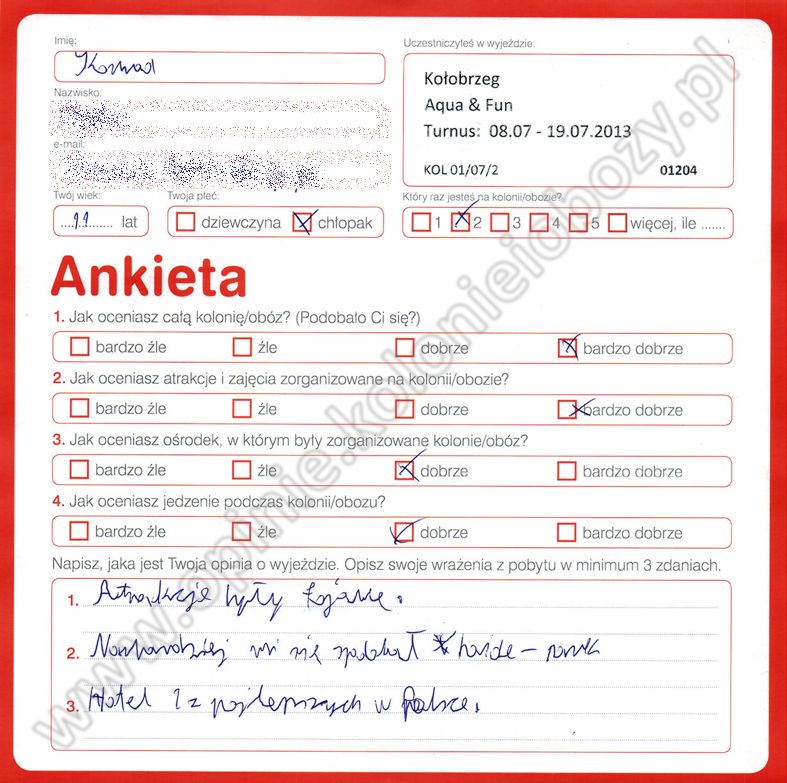 Imię:
Konrad
Uczestniczyłeś w wyjeździe:
Kołobrzeg
Aqua & Fun
Turnus: 08.07 - 19.07.2013
KOL 01/07/2 01204
Nazwisko:
e-mail:
Twój wiek: Twoja płeć: Który raz jesteś na kolonii/obozie?
....11...... lat dziewczyna chłopak 1 2 3 4 5 więcej, ile .......
Ankieta
1. Jak oceniasz całą kolonię/obóz? (Podobało Ci się?)
bardzo źle źle dobrze bardzo dobrze
2. Jak oceniasz atrakcje i zajęcia zorganizowane na kolonii/obozie?
bardzo źle źle dobrze bardzo dobrze
3. Jak oceniasz ośrodek, w którym były zorganizowane kolonie/obóz?
bardzo źle źle dobrze bardzo dobrze
4. Jak oceniasz jedzenie podczas kolonii/obozu?
bardzo źle źle dobrze bardzo dobrze
Napisz, jaka jest Twoja opinia o wyjeździe. Opisz swoje wrażenia z pobytu w minimum 3 zdaniach.
1. Atrakcje były fajne.
2. Najbardziej mi się podobał - park
3. Hotel 1 z najlepszych w Polsce.
www.opinie.kolonieiobozy.pl